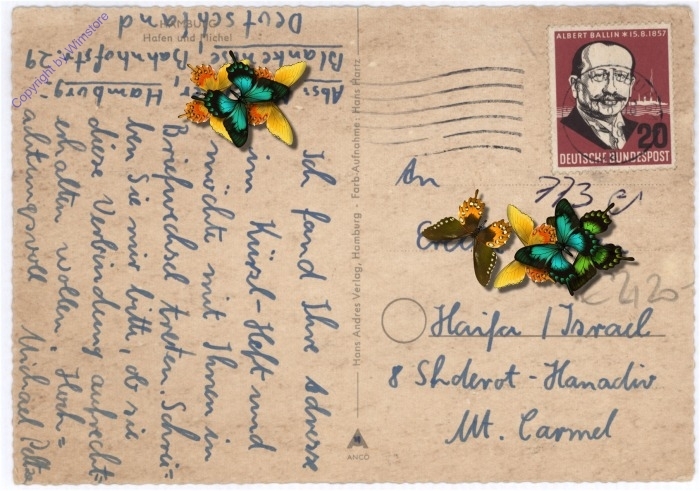 HAMBURG
Hafen und Michel
Copyright by Wimstore
Abs:
Hamburg-
Blankenese, Bahnhofstr. 29
Deutschland
Ich fand Ihre Adresse
im Kürzl-Heft und
möchte mit Ihnen in
Briefwechsel treten. Schrei=
ben Sie mir bitte, ob sie
diese Verbindung aufrecht=
erhalten wollen. Hoch=
achtungsvoll Michael
Hans Andres Verlag, Hamburg - Farb-Aufnahme: Hans Hartz
ANCO
ALBERT BALLIN * 15.8.1857
20
DEUTSCHE BUNDESPOST
An
773
Haifa / Israel
8 Shderot-Hanadiv
Mt. Carmel